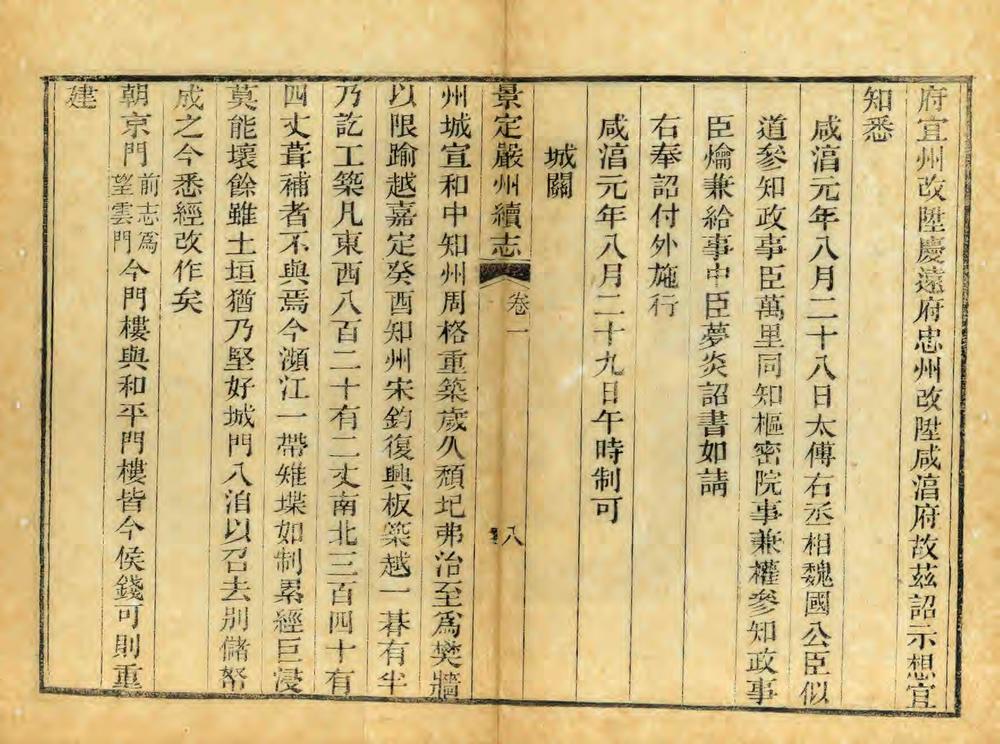 府宜州改陞慶遠府忠州改陞咸湻府故茲詔示想宜
知悉
咸湻元年八月二十八日太傅右丞相魏國公臣似
道參知政事臣萬里同知樞密院事兼權參知政事
臣爚兼給事中臣夢炎詔書如請
右奉詔付外施行
咸湻元年八月二十九日午時制可
城闗
景定嚴州續志 卷一 八
州城宣和中知州周格重築歲久頹圮弗治至爲樊牆
以限踰越嘉定癸酉知州宋鈞復興板築越一朞有半
乃訖工築凡東西八百二十有二丈南北三百四十有
四丈葺補者不與焉今瀕江一帶雉堞如制累經巨浸
莫能壞餘雖土垣猶乃堅好城門八洎以召去別儲帑
成之今悉經改作矣
朝京門前志爲望雲門今門樓與和平門樓皆今侯錢可則重
建